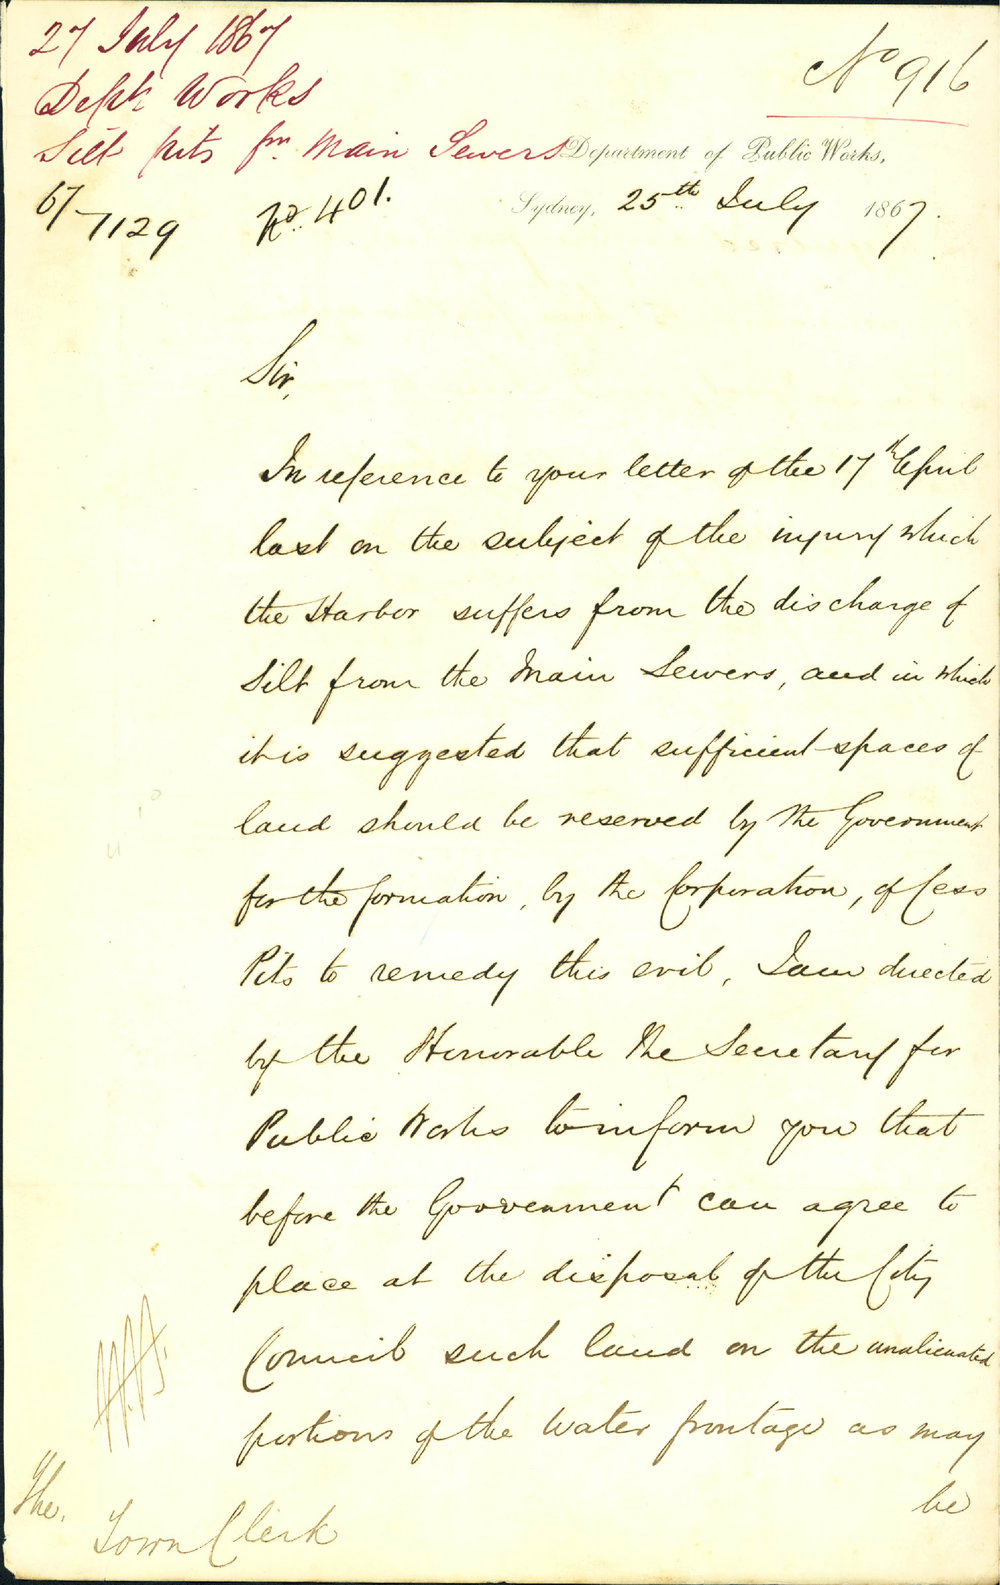 27 July 1867
Nº 916
Dept. Works
Silt pits fm. Main Sewers
Department of Public Works,
67/7129
No. 401.
Sydney, 25th July 1867.
Sir,
In reference to your letter of the 17th April
last on the subject of the injury which
the Harbor suffers from the discharge of
Silt from the Main Sewers, and in which
it is suggested that sufficient spaces of
land should be reserved by the Government
for the formation, by the Corporation, of Cess
Pits to remedy this evil, I am directed
by the Honorable the Secretary for
Public Works to inform you that
before the Government can agree to
place at the disposal of the City
Council such land on the unalienated
portions of the Water frontage as may
be
The.
Town Clerk